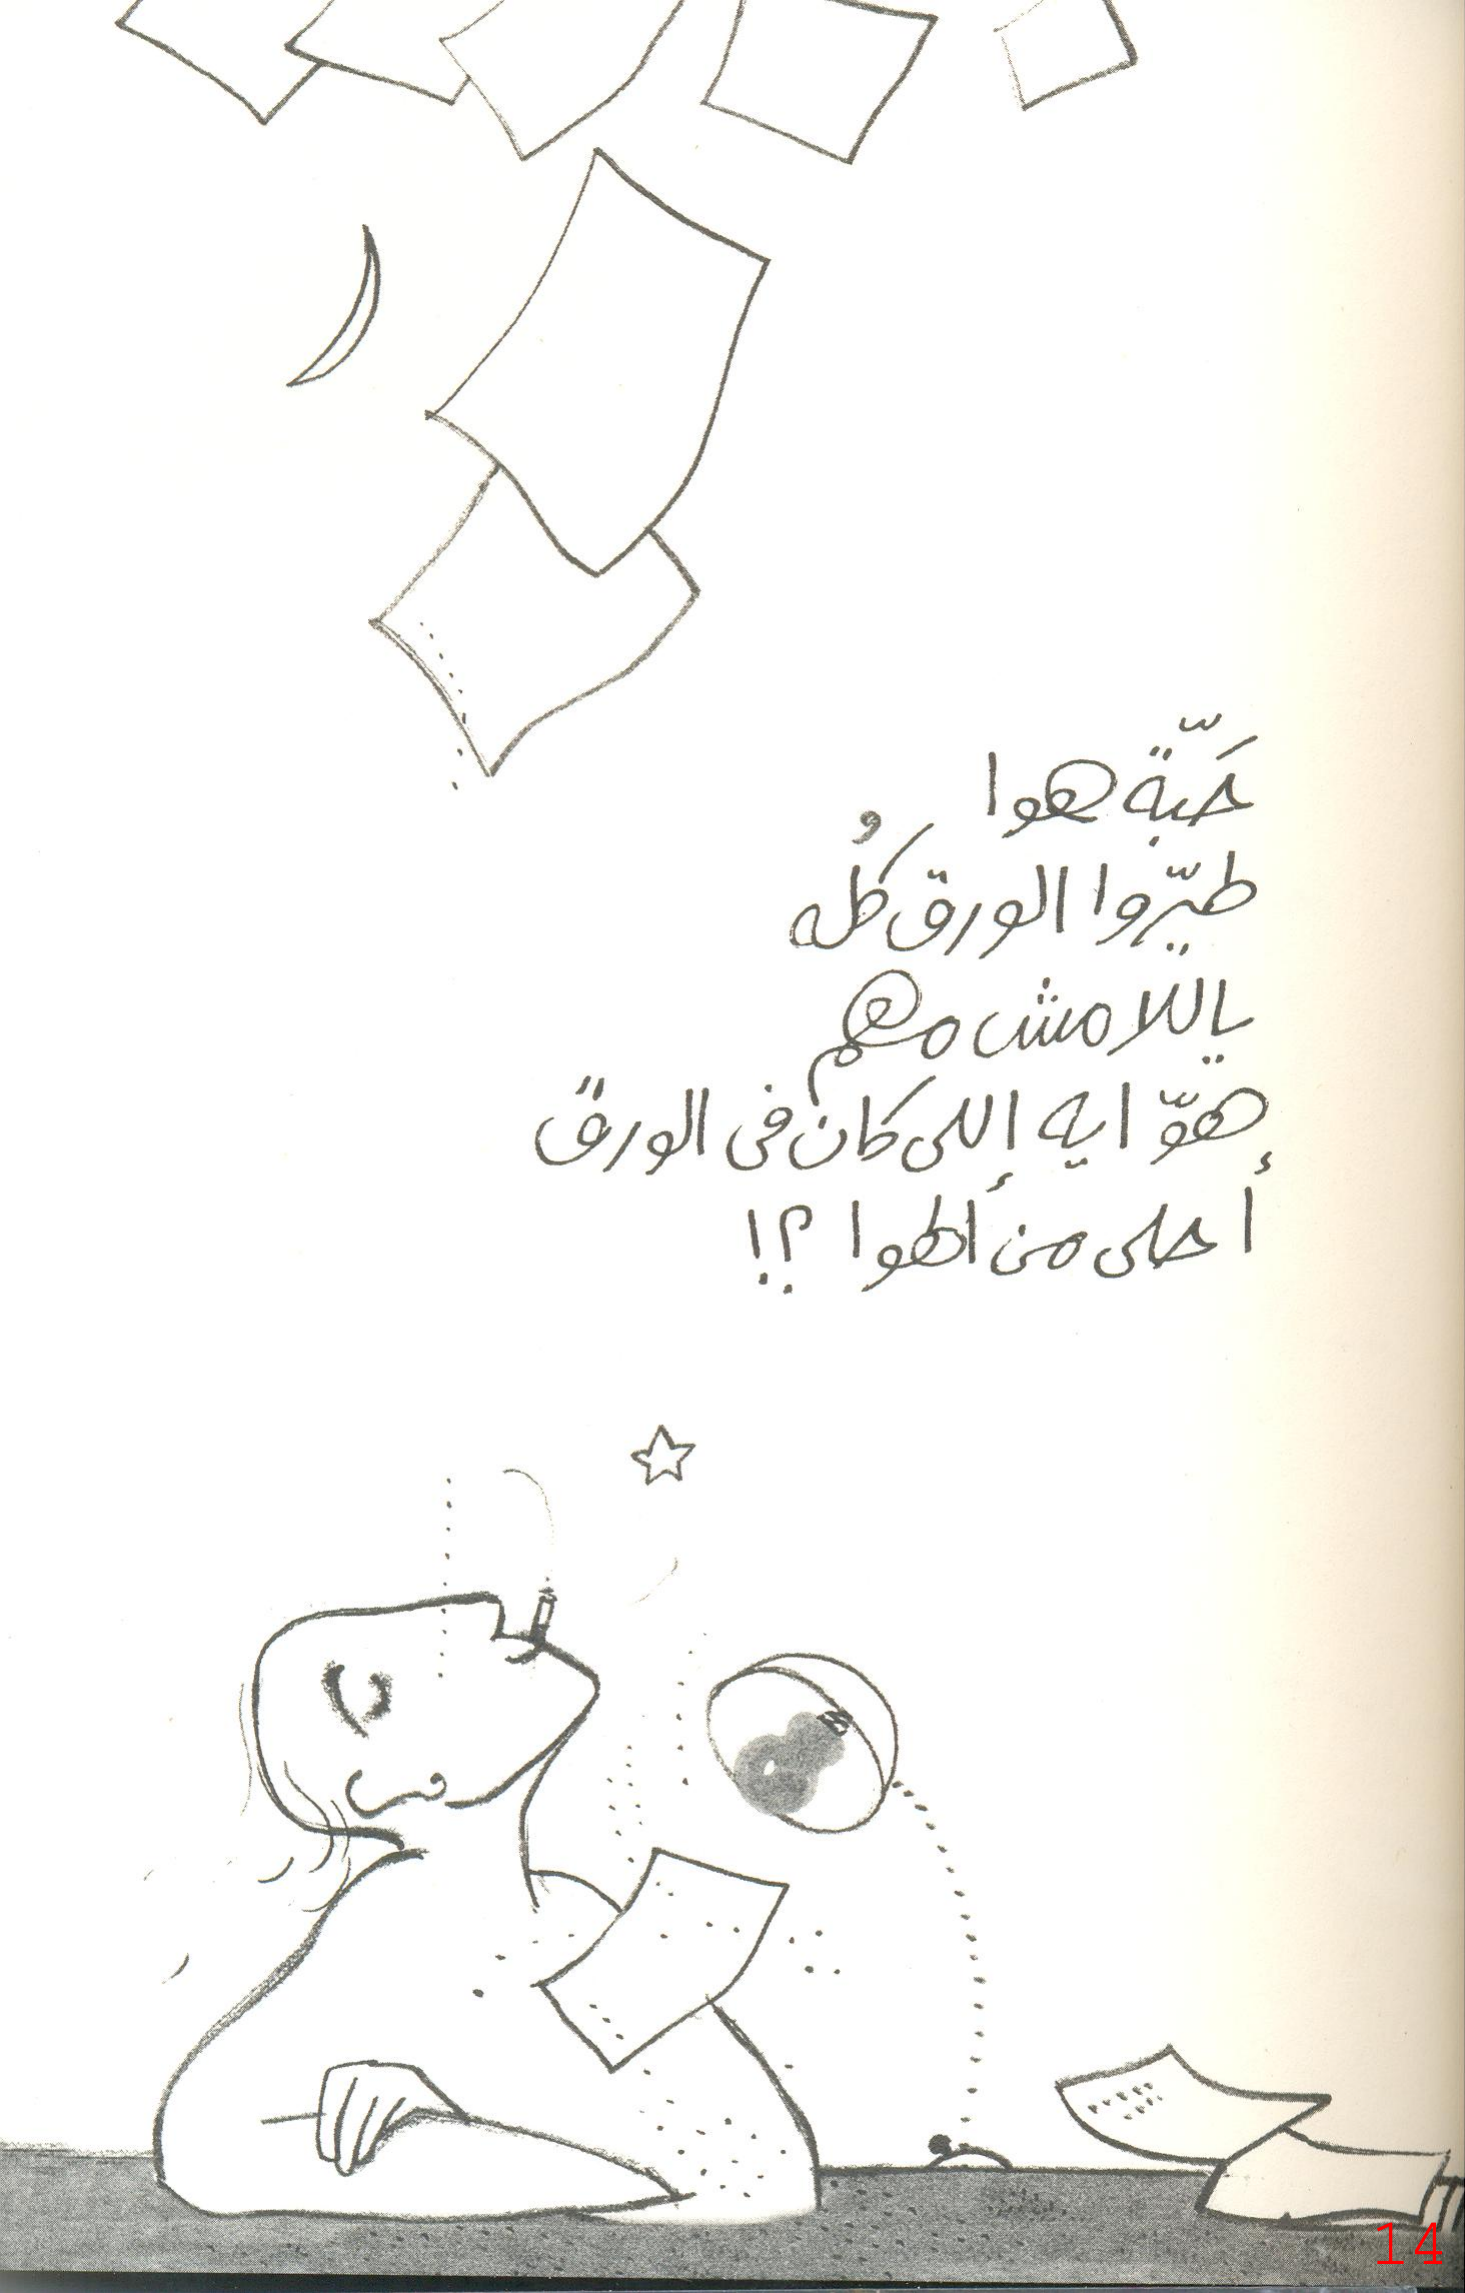 حَبّة هوا
طيّروا الورق كُله
ياللا مش مهم
هوّ ايه إللى كان فى الورق
أحلى من الهوا ؟!
14